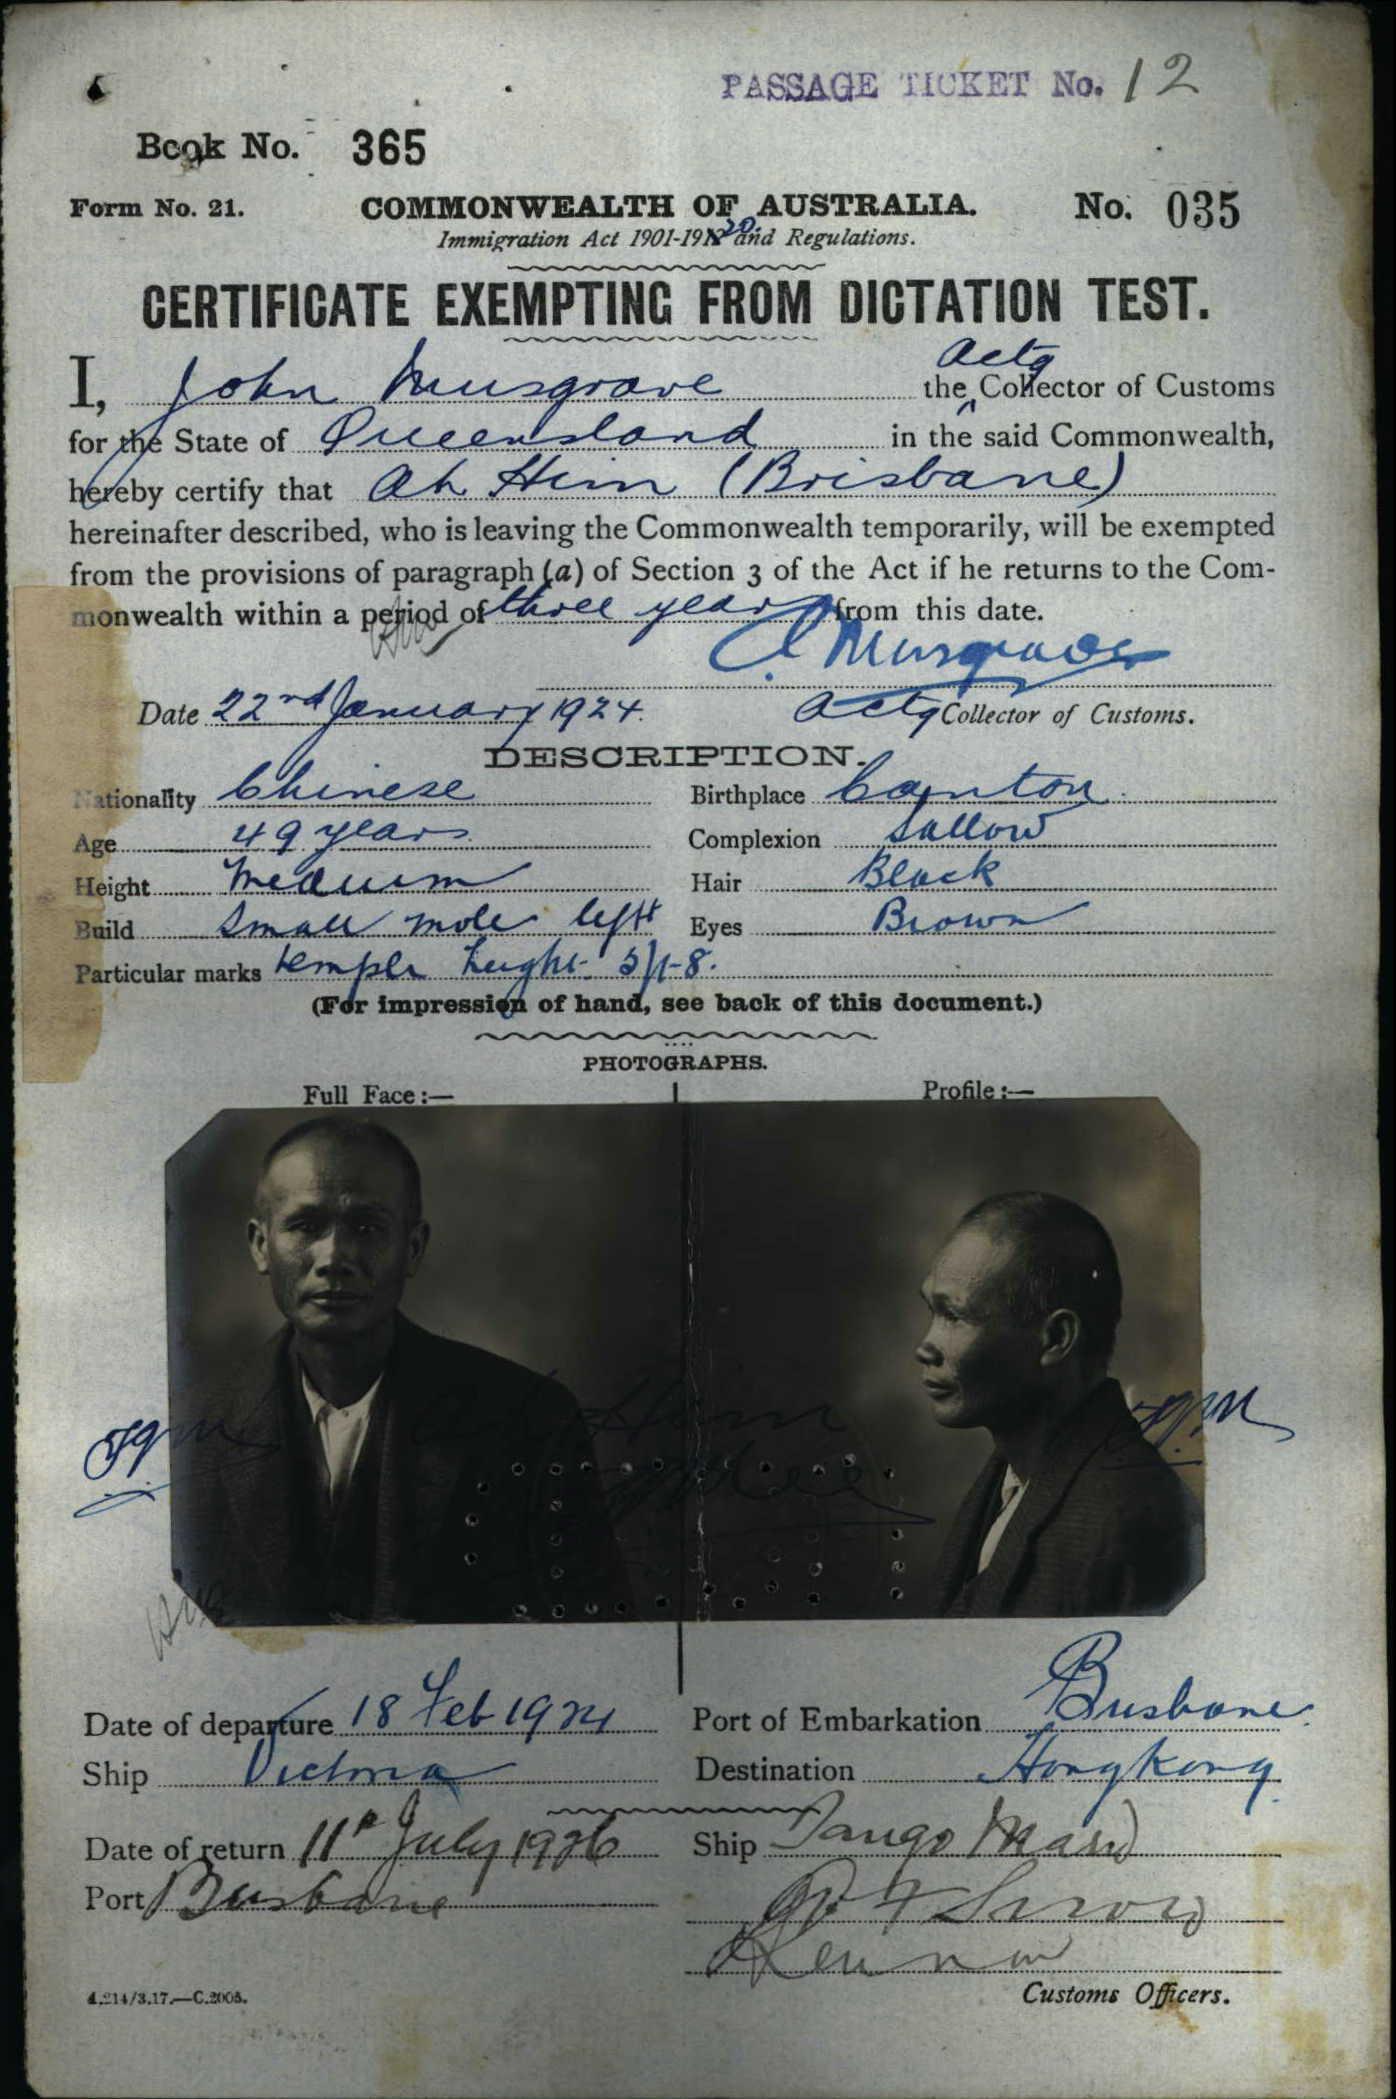 PASSAGE TICKET No. 12
Book No. 365
Form No. 21. COMMONWEALTH OF AUSTRALIA. No. 035
Immigration Act 1901-1920 and Regulations.
CERTIFICATE EXEMPTING FROM DICTATION TEST.
I, John Musgrave the Actg Collector of Customs
for the State of Queensland in the said Commonwealth,
hereby certify that Ah Him (Brisbane)
hereinafter described, who is leaving the Commonwealth temporarily, will be exempted
from the provisions of paragraph (a) of Section 3 of the Act if he returns to the Com-
monwealth within a period of three years from this date.
Musgrave
Date 22nd January 1924. Actg Collector of Customs.
DESCRIPTION.
Nationality Chinese Birthplace Canton
Age 49 years Complexion Sallow
Height Medium Hair Black
Build Small mole left Eyes Brown
Particular marks temple height
(For impression of hand, see back of this document.)
PHOTOGRAPHS.
Full Face:— Profile:—
Ah Him
Date of departure 18 Feb 1924 Port of Embarkation Brisbane
Ship Victoria Destination Hongkong
Date of return 11th July 1926 Ship Tango Maru
Port Brisbane
Customs Officers.
4.214/3.17.—C.2005.